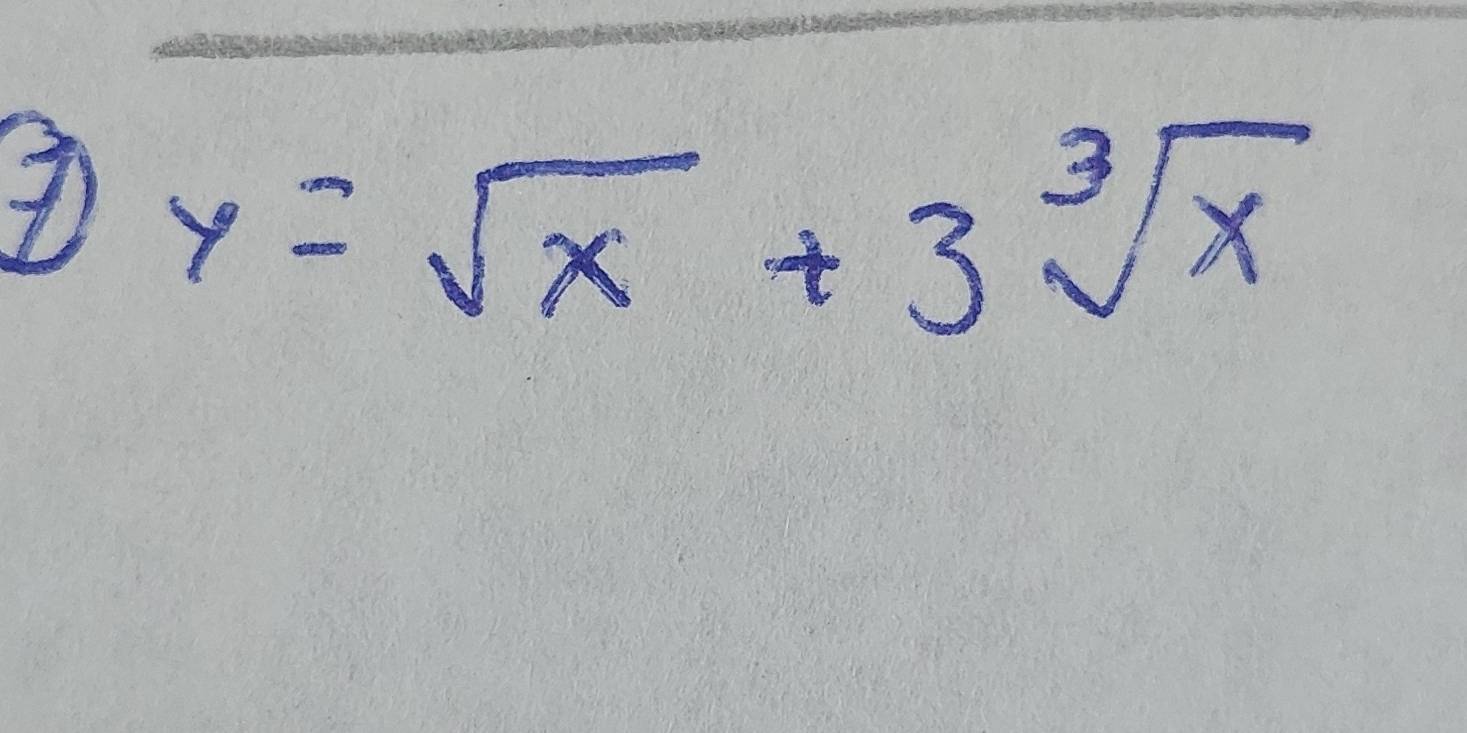 ⑦ y = √x + 3 ∛x